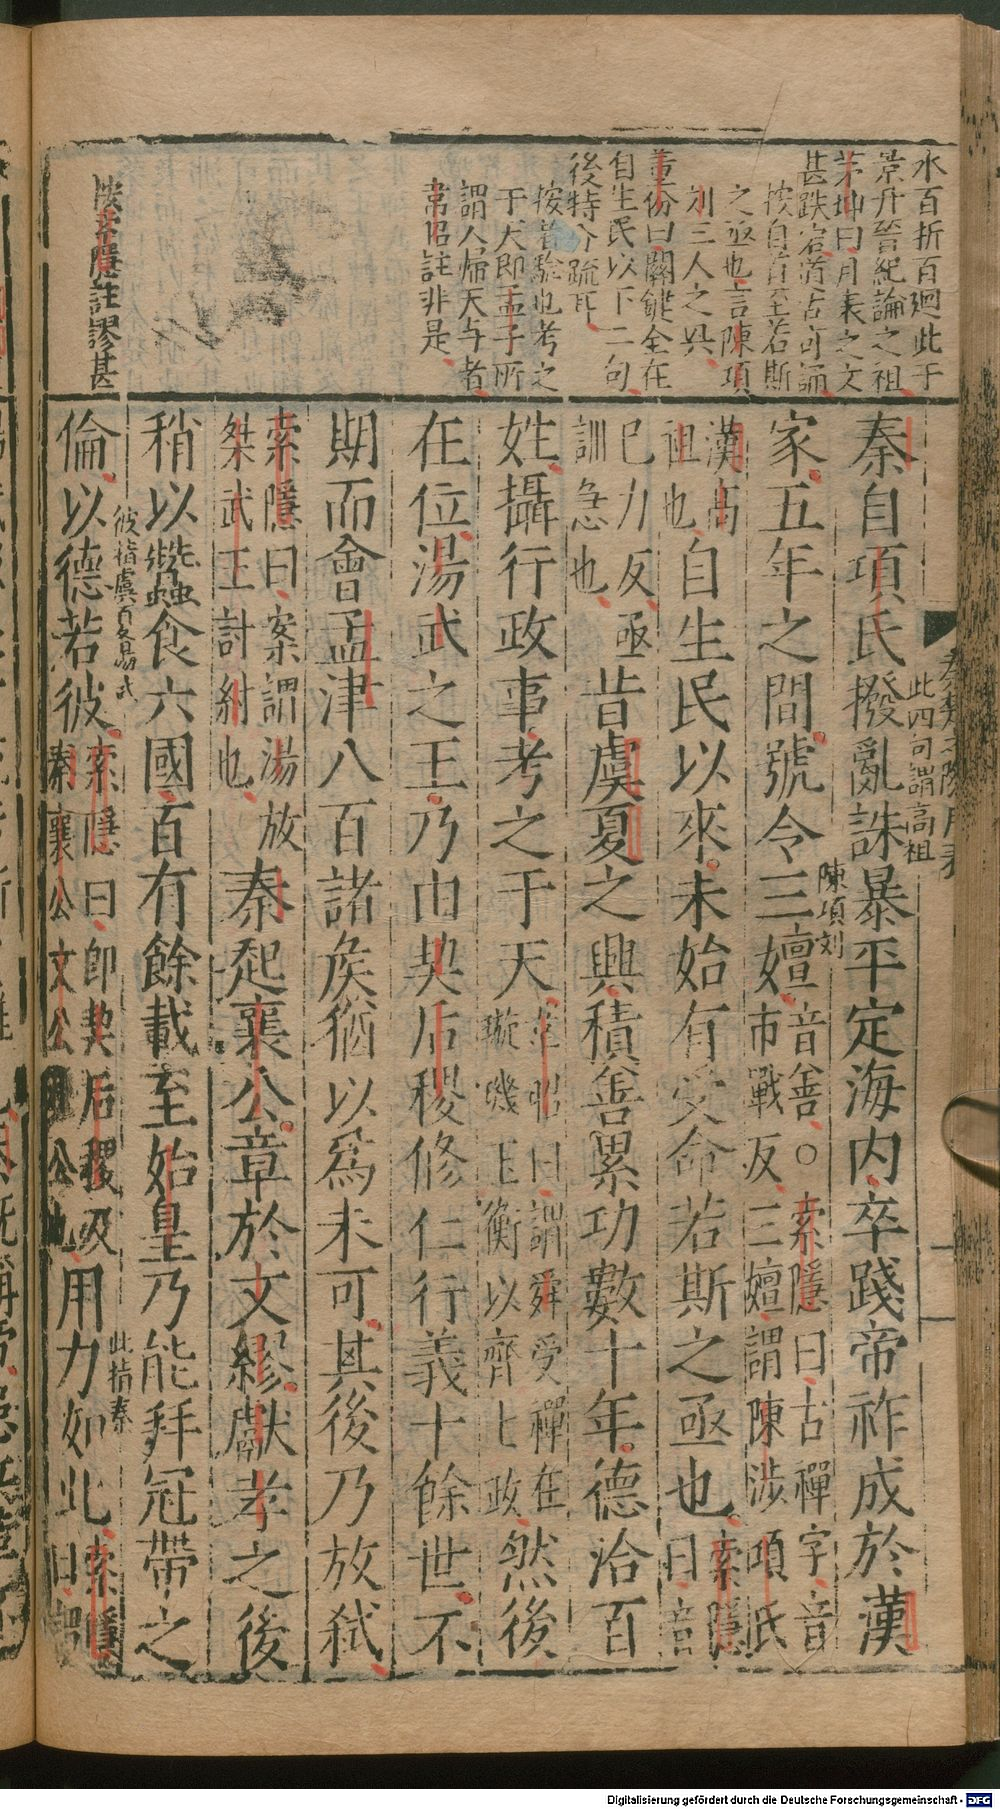 水百折百廻此于
景丹晉紀論之祖
茅坤曰月表之文
甚跌宕蒼古可誦
按自首至若斯
之亟也言陳項
刘三人之興
董份曰關鍵全在
自生民以下二句
後特分疏耳
按首驗也考之
于天即孟子所
謂人歸天与者
韋昭註非是
按索隱註謬甚
秦楚之際月表
此四句謂高祖
秦自項氏撥亂誅暴平定海内卒踐帝祚成於漢
陳項刘
家五年之間號令三嬗音善○索隱曰古禪字音
市戰反三嬗謂陳涉項氏
漢高
祖也自生民以來未始有受命若斯之亟也索隱
曰音
巳力反亟
訓急也昔虞夏之興積善累功數十年德洽百
姓攝行政事考之于天韋昭曰謂舜受禪在
璇璣玉衡以齊七政然後
在位湯武之王乃由契后稷修仁行義十餘世不
期而會孟津八百諸侯猶以爲未可其後乃放弑
索隱曰案謂湯放
桀武王討紂也秦起襄公章於文繆獻孝之後
稍以蠶食六國百有餘載至始皇乃能拜冠帶之
彼指虞夏湯武
倫以德若彼索隱曰即契后稷及
秦襄公文公公也用力如此索隱
曰謂
此指秦
Digitalisierung gefördert durch die Deutsche Forschungsgemeinschaft - DFG